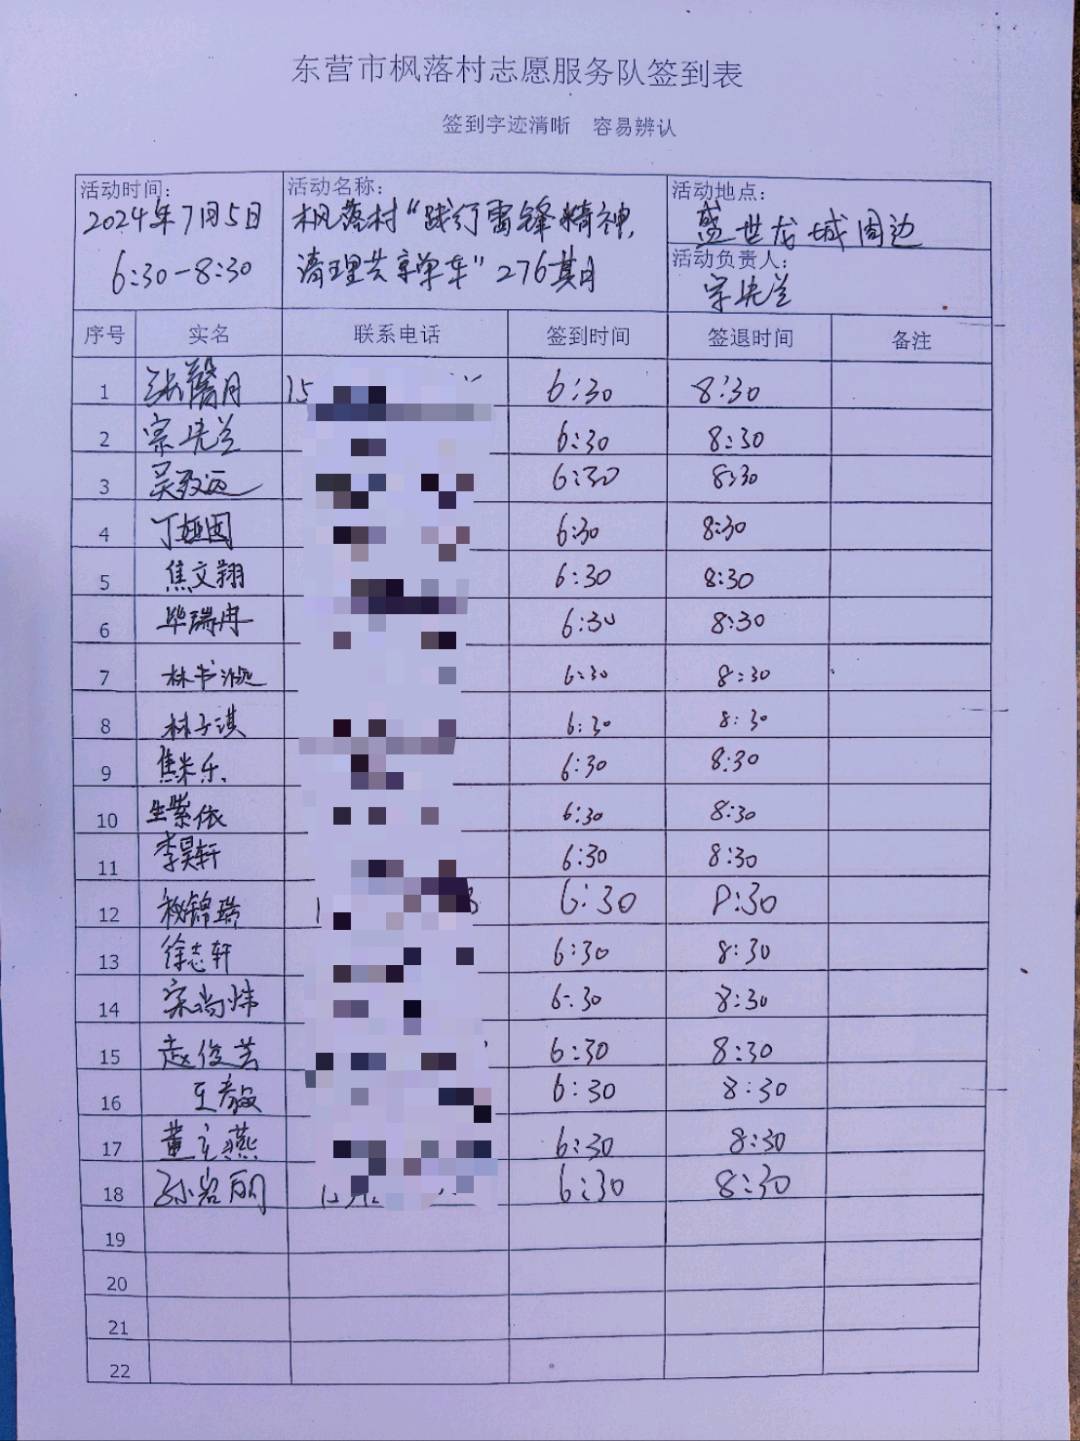 东营市枫落村志愿服务队签到表
签到字迹清晰 容易辨认
活动时间: 活动名称: 活动地点:
2024年7月5日 枫落村“践行雷锋精神, 盛世龙城周边
6:30-8:30 清理共享单车”276期 活动负责人:
宗先兰
序号 实名 联系电话 签到时间 签退时间 备注
1 张馨月 15 6:30 8:30
2 宗先兰 6:30 8:30
3 吴致远 6:30 8:30
4 丁娅因 6:30 8:30
5 焦文翔 6:30 8:30
6 毕瑞冉 6:30 8:30
7 林书 6:30 8:30
8 林子淇 6:30 8:30
9 焦米乐 6:30 8:30
10 生紫依 6:30 8:30
11 李昊轩 6:30 8:30
12 锦瑞 1 3 6:30 8:30
13 徐志轩 6:30 8:30
14 宋尚炜 6:30 8:30
15 赵俊芸 6:30 8:30
16 王毅 6:30 8:30
17 董立燕 6:30 8:30
18 孙岩丽 6:30 8:30
19
20
21
22